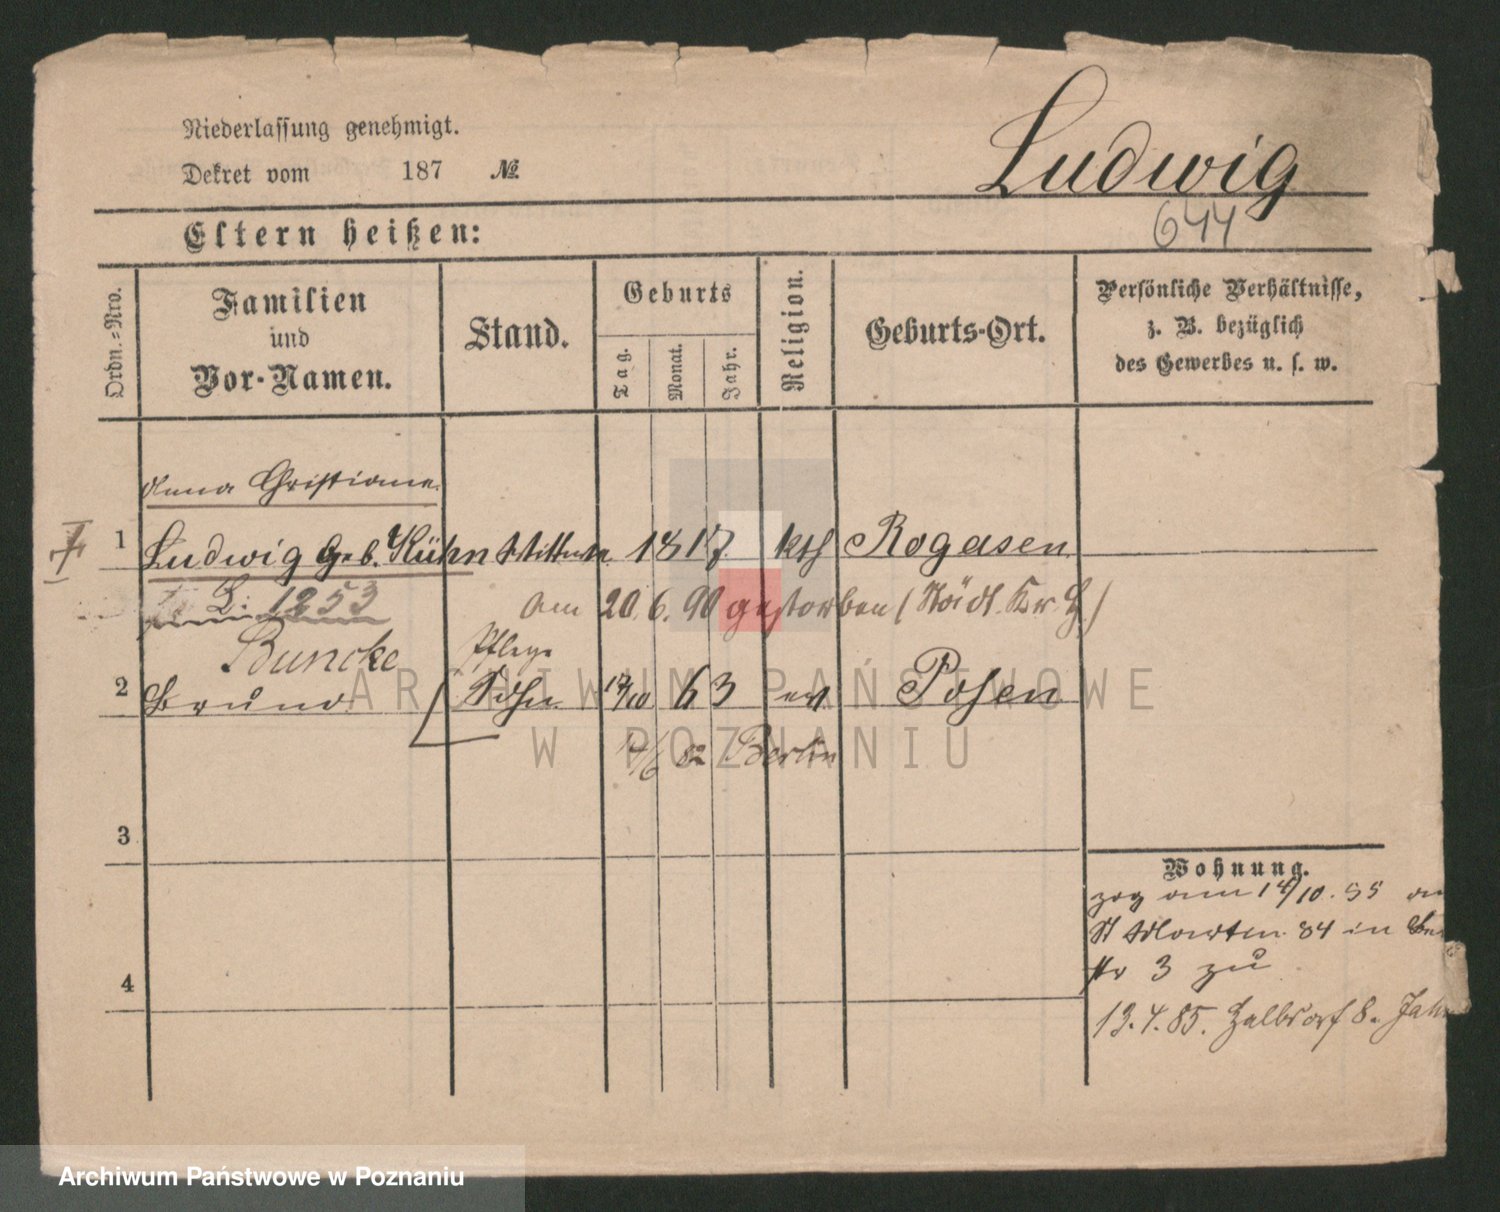 Niederlassung genehmigt.
Dekret vom 187 №
Ludwig
644
Eltern heißen:
Ordn.=Nro.
Familien
und
Vor-Namen.
Stand.
Geburts
Tag.
Monat.
Jahr.
Religion.
Geburts-Ort.
Persönliche Verhältnisse,
z. B. bezüglich
des Gewerbes u. s. w.
Anna Christiane
1 Ludwig geb. Kühn Wittwe 1817 kth Rogasen
L: 1253
am 20. 6. 90 gestorben (Städt. Kr. H.)
Buncke
Pflege
2 Bruno Sohn 17/10 63 ev Posen
82 Berlin
3
4
Wohnung.
zog am 14/10. 85
St Martin 84 in
str 3 zu
13. 4. 85. Halbdorf 8.
ARCHIWUM PAŃSTWOWE
W POZNANIU
Archiwum Państwowe w Poznaniu